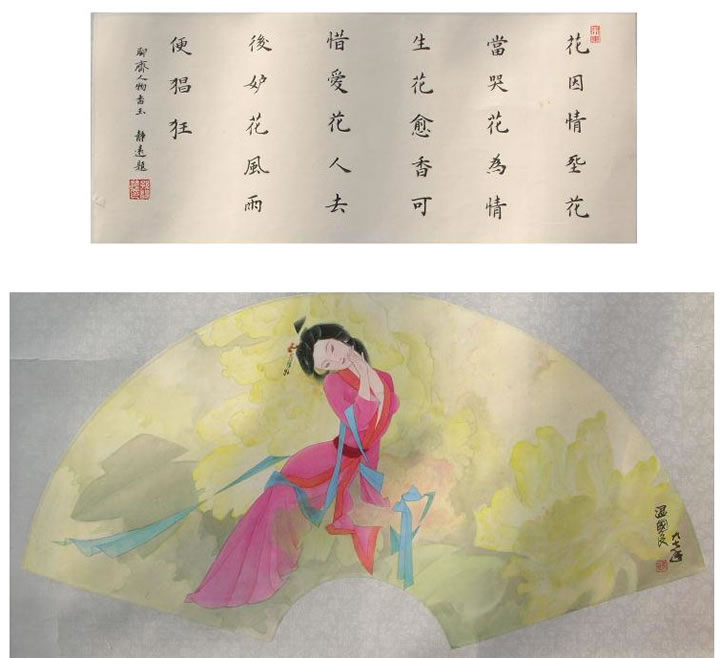 花因情花
當哭花為情
生花愈香可
惜愛花人去
後妒花風雨
便猖狂
聊齋人物香玉 靜遠題
溫國良